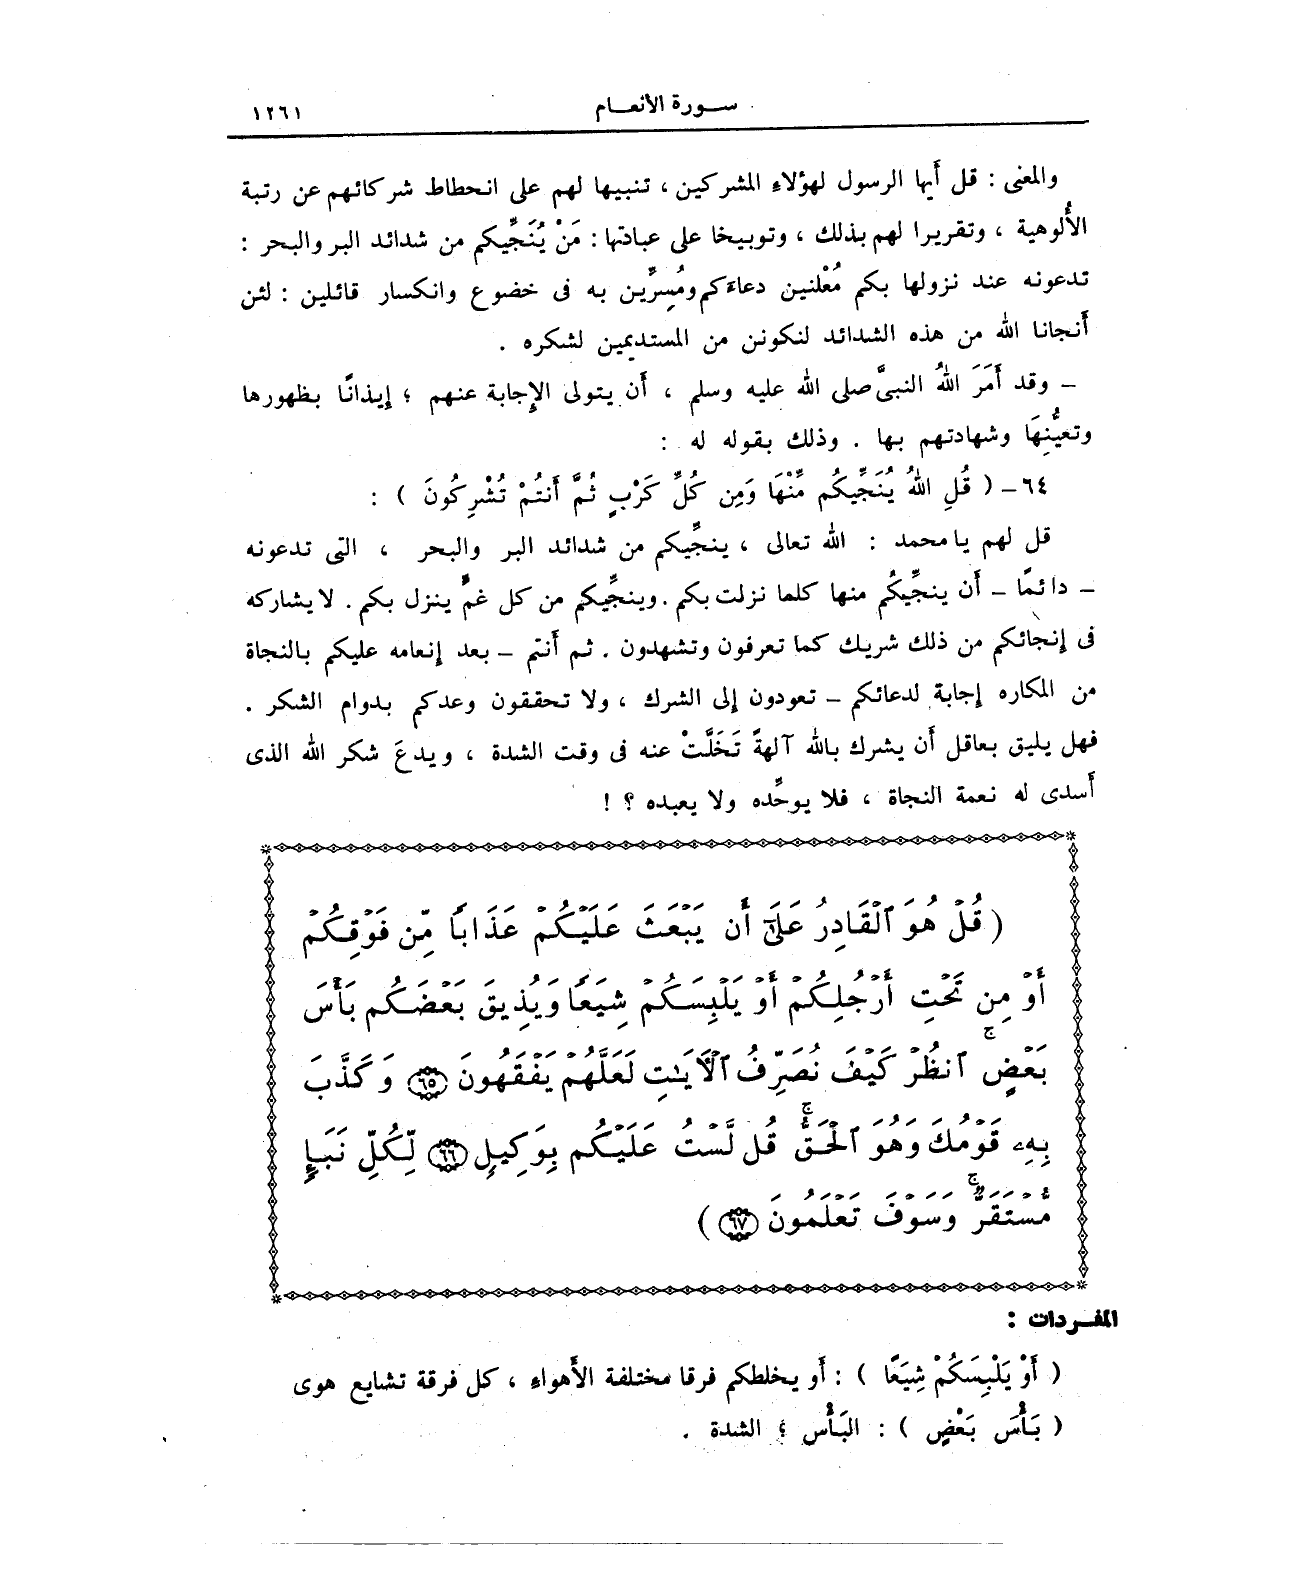 سـورة الأنعـام ١٢٦١
والمعنى : قل أيها الرسول لهؤلاء المشركين ، تنبيها لهم على انحطاط شركائهم عن رتبة
الأُلوهية ، وتقريرا لهم بذلك ، وتوبيخا على عبادتها : مَنْ يُنَجِّيكم من شدائد البر والبحر :
تدعونه عند نزولها بكم مُعْلنين دعاءَكم ومُسِرِّين به فى خضوع وانكسار قائلين : لئن
أَنجانا الله من هذه الشدائد لنكونن من المستديمين لشكره .
ـ وقد أَمَرَ اللهُ النبىَّ صلى الله عليه وسلم ، أَن يتولى الإِجابة عنهم ؛ إِيذانًا بظهورها
وتعيُّنِهَا وشهادتهم بها . وذلك بقوله له :
٦٤ ـ ( قُلِ اللهُ يُنَجِّيكُم مِّنْهَا وَمِن كُلِّ كَرْبٍ ثُمَّ أَنتُمْ تُشْرِكُونَ ) :
قل لهم يا محمد : الله تعالى ، ينجِّيكم من شدائد البر والبحر ، التى تدعونه
ـ دائمًا ـ أَن ينجِّيكُم منها كلما نزلت بكم . وينجِّيكم من كل غمٍّ ينزل بكم . لا يشاركه
فى إِنجائكم من ذلك شريك كما تعرفون وتشهدون . ثم أَنتم ـ بعد إِنعامه عليكم بالنجاة
من المكاره إِجابة لدعائكم ـ تعودون إِلى الشرك ، ولا تحققون وعدكم بدوام الشكر .
فهل يليق بعاقل أَن يشرك بالله آلهةً تَخَلَّتْ عنه فى وقت الشدة ، ويدعَ شكر الله الذى
أَسدى له نعمة النجاة ، فلا يوحِّده ولا يعبده ؟ !
( قُلْ هُوَ ٱلْقَادِرُ عَلَىٰٓ أَن يَبْعَثَ عَلَيْكُمْ عَذَابًا مِّن فَوْقِكُمْ
أَوْ مِن تَحْتِ أَرْجُلِكُمْ أَوْ يَلْبِسَكُمْ شِيَعًا وَيُذِيقَ بَعْضَكُم بَأْسَ
بَعْضٍ ۗ ٱنظُرْ كَيْفَ نُصَرِّفُ ٱلْأَيَٰتِ لَعَلَّهُمْ يَفْقَهُونَ ٦٥ وَكَذَّبَ
بِهِۦ قَوْمُكَ وَهُوَ ٱلْحَقُّ ۚ قُل لَّسْتُ عَلَيْكُم بِوَكِيلٍ ٦٦ لِّكُلِّ نَبَإٍ
مُّسْتَقَرٌّ ۚ وَسَوْفَ تَعْلَمُونَ ٦٧ )
المفـردات :
( أَوْ يَلْبِسَكُمْ شِيَعًا ) : أَو يخلطكم فرقا مختلفة الأَهواء ، كل فرقة تشايع هوى
( بَأْسَ بَعْضٍ ) : البَأْس ؛ الشدة .